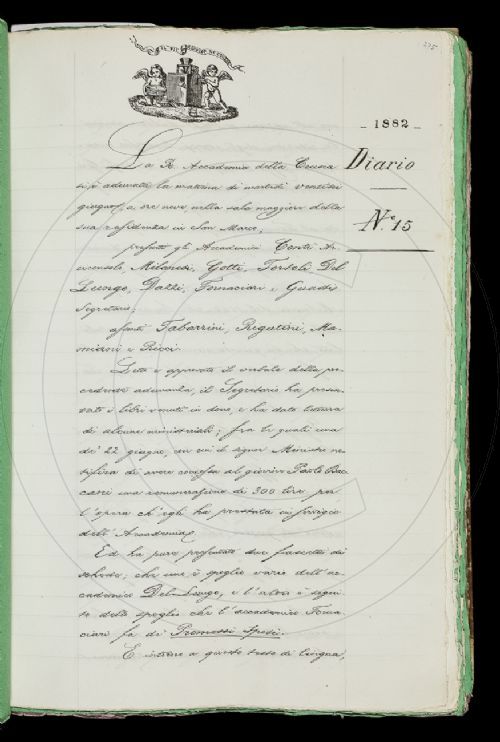 275
IL PIÙ BEL FIOR NE COGLIE
1882
Diario
N.º 15
La R. Accademia della Crusca
si è adunata la mattina di martedì ventisei
giugno, a ore nove, nella sala maggiore della
sua residenza in San Marco,
presenti gli Accademici Conti, Ar-
ciconsolo, Milanesi, Gotti, Tortoli, Del
Lungo, Dazzi, Tornaciari e Guasti,
Segretario;
assenti Tabarrini, Rigutini, Ma-
miani e Ricci.
Letto e approvato il verbale della pre-
cedente adunanza, il Segretario ha presen-
tato i libri venuti in dono, e ha dato lettura
di alcune ministeriali; fra le quali una
de' 22 giugno, in cui il signor Ministro no-
tifica di avere concessa al giovine Paolo
una remunerazione di 300 lire per
l'opera ch'egli ha prestata in servigio
dell'Accademia.
Ed ha pure presentato due fascetti di
schede; che uno è spoglio vario dell'ac-
cademico Del Lungo, e l'altro è segui-
to dello spoglio che l'accademico Forna-
ciari fa de' Promessi Sposi.
E intorno a questo testo di lingua,